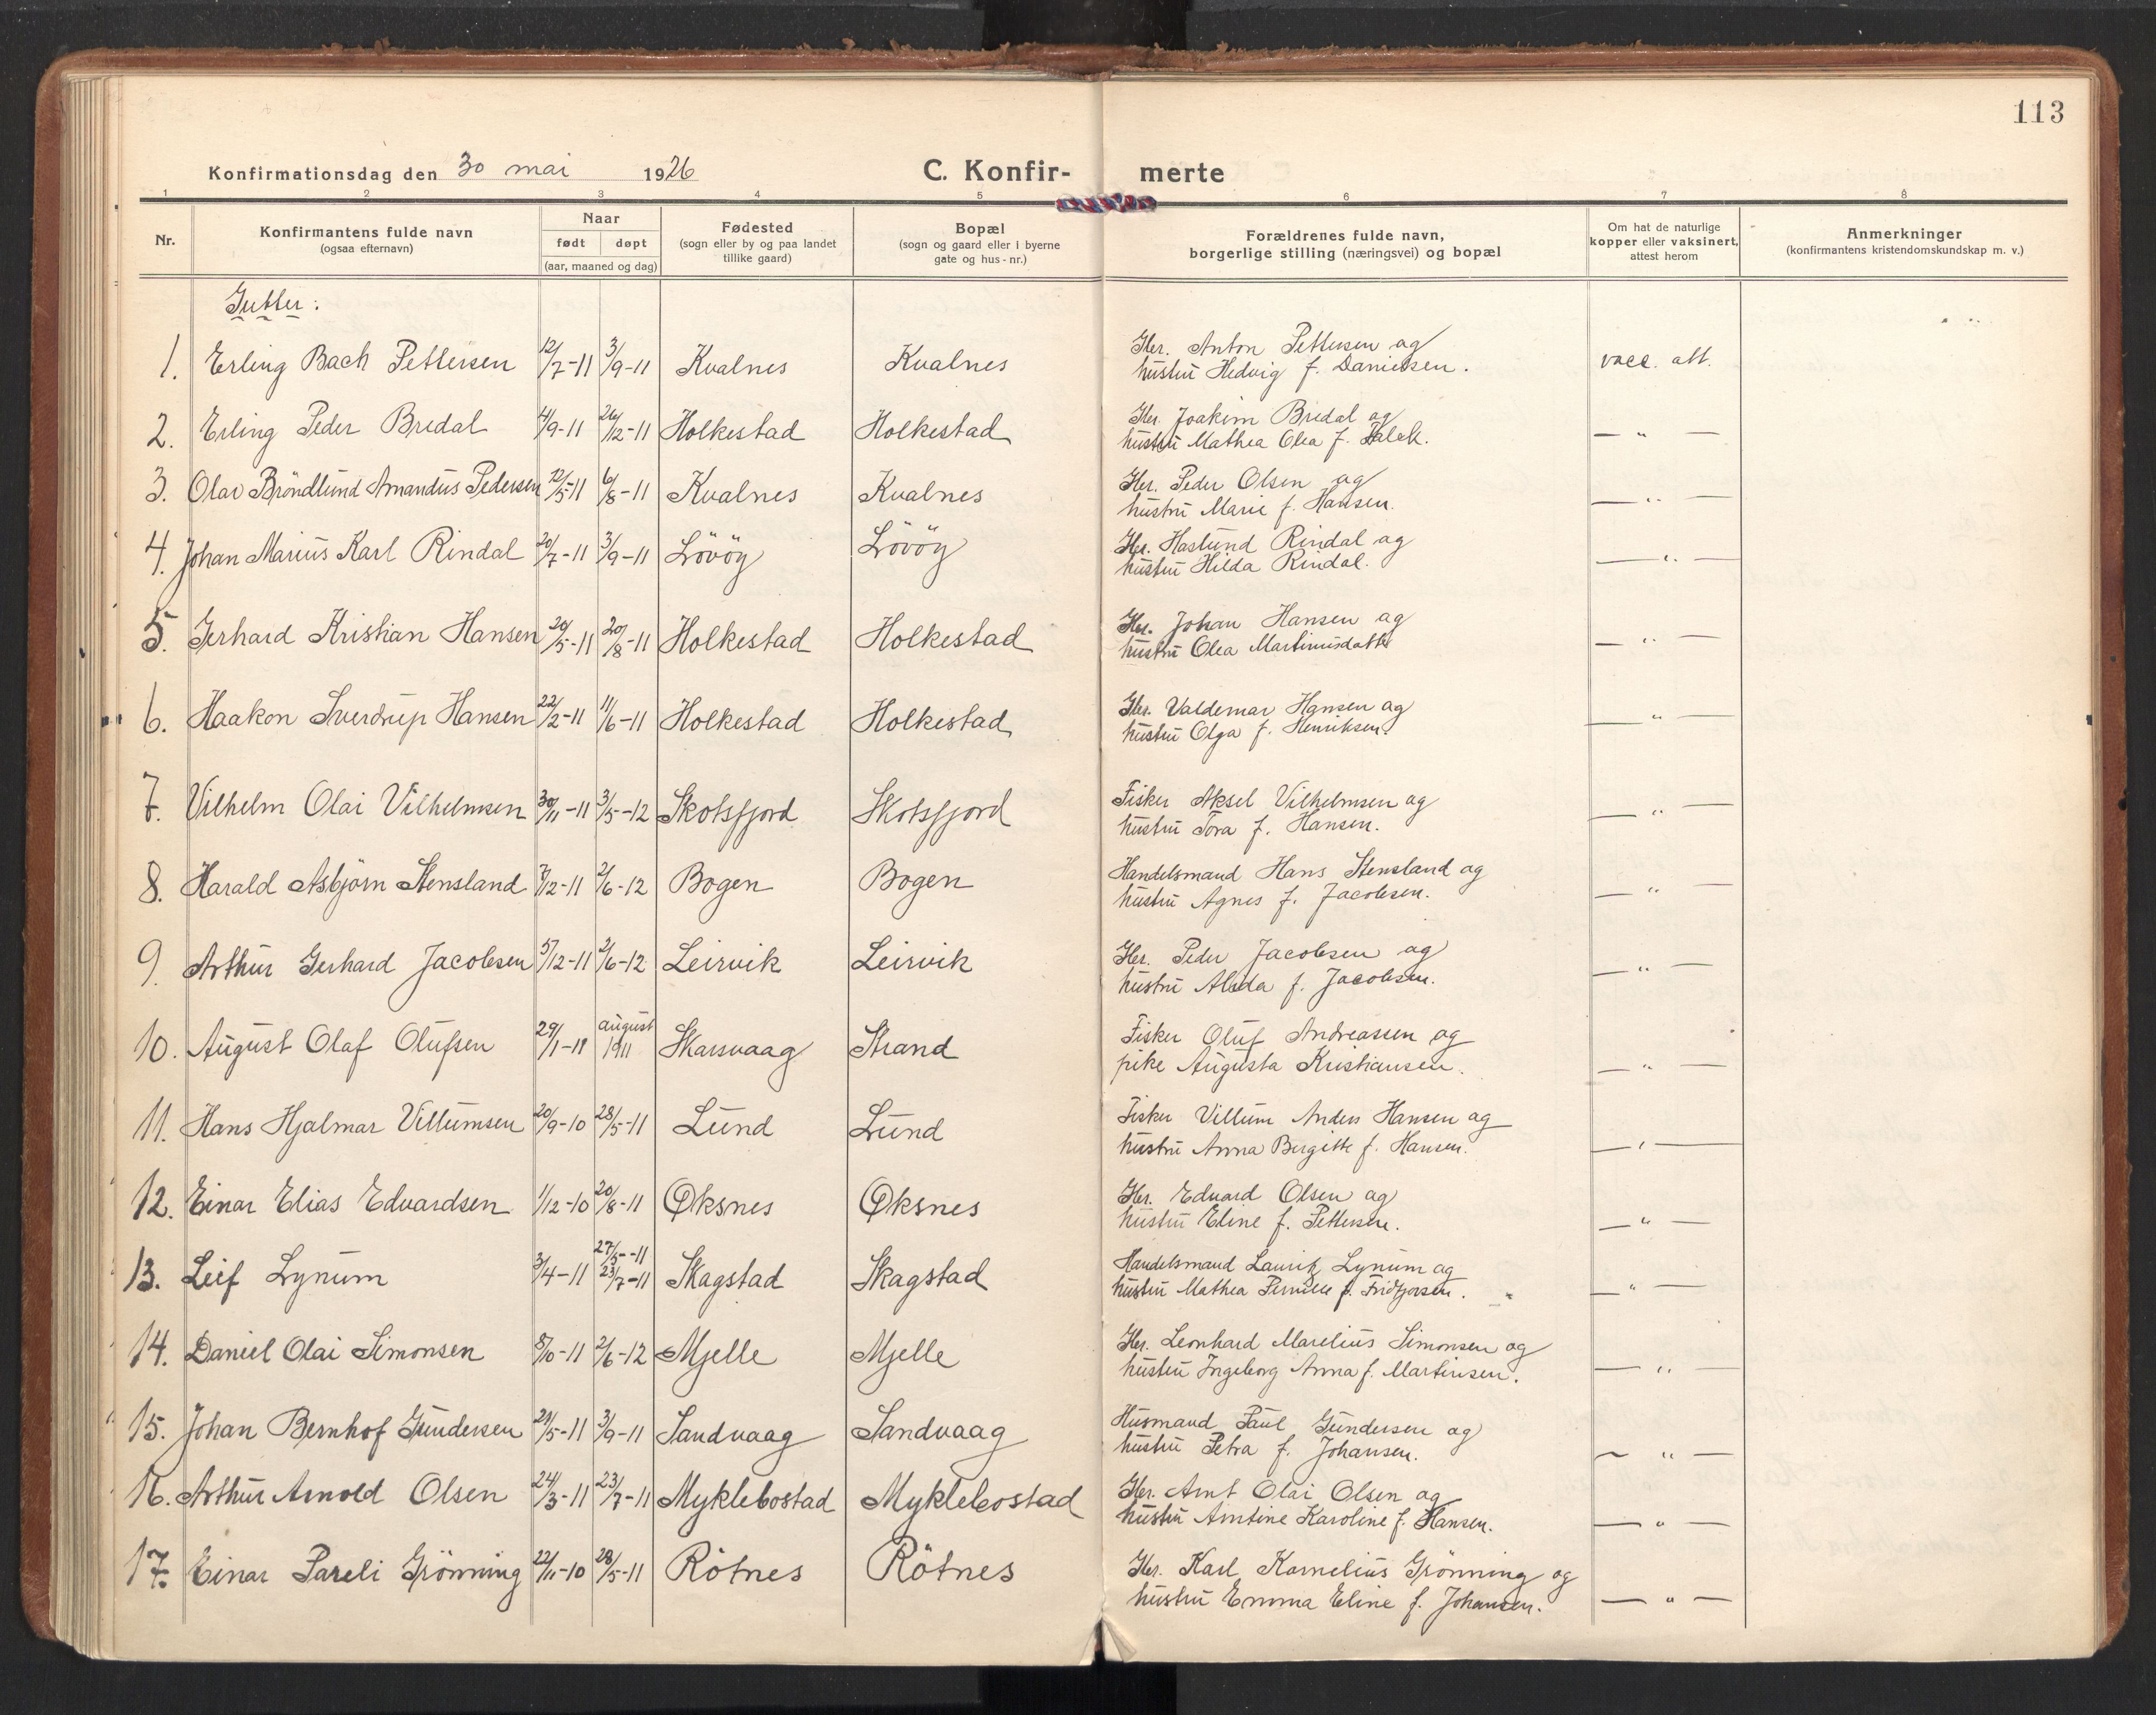 113
Konfirmationsdag den 30 mai 1926 C. Konfir- merte
1 2 3 4 5 6 7 8
Nr. Konfirmantens fulde navn (ogsaa efternavn) Naar født døpt (aar, maaned og dag) Fødested (sogn eller by og paa landet tillike gaard) Bopæl (sogn og gaard eller i byerne gate og hus-nr.) Forældrenes fulde navn, borgerlige stilling (næringsvei) og bopæl Om hat de naturlige kopper eller vaksinert, attest herom Anmerkninger (konfirmantens kristendomskundskap m. v.)
Gutter:
1. Erling Bach Pettersen 12/7-11 3/9-11 Kvalnes Kvalnes Gbr. Anton Pettersen og
hustru Hedvig f. Danielsen. vacc. att.
2. Erling Peder Bredal 4/9-11 26/12-11 Holkestad Holkestad Gbr. Joakim Bredal og
hustru Mathea Olea f. Falck. — " —
3. Olav Bröndlund Amandus Pedersen 12/5-11 6/8-11 Kvalnes Kvalnes Gbr. Peder Olsen og
hustru Marie f. Hansen. — " —
4. Johan Marius Karl Rindal 20/7-11 3/9-11 Lövöy Lövöy Gbr. Haslund Rindal og
hustru Hilda Rindal. — " —
5. Gerhard Kristian Hansen 20/5-11 20/8-11 Holkestad Holkestad Gbr. Johan Hansen og
hustru Olea Martinusdatter — " —
6. Haakon Sverdrup Hansen 22/2-11 11/6-11 Holkestad Holkestad Gbr. Valdemar Hansen og
hustru Olga f. Henriksen. — " —
7. Vilhelm Olai Vilhelmsen 30/11-11 3/5-12 Skotsfjord Skotsfjord Fisker Aksel Vilhelmsen og
hustru Tora f. Hansen. — " —
8. Harald Asbjørn Stensland 7/12-11 2/6-12 Bogen Bogen Handelsmand Hans Stensland og
hustru Agnes f. Jacobsen. — " —
9. Arthur Gerhard Jacobsen 5/12-11 2/6-12 Leirvik Leirvik Gbr. Peder Jacobsen og
hustru Alida f. Jacobsen. — " —
10. August Olaf Olufsen 29/1-11 august 1911 Skarsvaag Strand Fisker Oluf Andreassen og
pike Augusta Kristiansen. — " —
11. Hans Hjalmar Villumsen 20/9-10 28/5-11 Lund Lund Fisker Villum Anders Hansen og
hustru Anna Birgitte f. Hansen. — " —
12. Einar Elias Edvardsen 1/12-10 20/8-11 Øksnes Øksnes Gbr. Edvard Olsen og
hustru Eline f. Pettersen. — " —
13. Leif Lynum 3/4-11 27/5-11 23/7-11 Skagstad Skagstad Handelsmand Lauritz Lynum og
hustru Mathea Pernille f. Fridtjofsen. — " —
14. Daniel Olai Simonsen 8/10-11 2/6-12 Mjelle Mjelle Gbr. Leonhard Marelius Simonsen og
hustru Ingeborg Anna f. Martinsen. — " —
15. Johan Bernhof Gundersen 29/5-11 3/9-11 Sandvaag Sandvaag Husmand Paul Gundersen og
hustru Petra f. Johansen. — " —
16. Arthur Arnold Olsen 24/3-11 23/7-11 Myklebostad Myklebostad Gbr. Arnt Olai Olsen og
hustru Arntine Karoline f. Hansen. — " —
17. Einar Pareli Grönning 22/11-10 28/5-11 Rötnes Rötnes Gbr. Karl Kornelius Grönning og
hustru Emma Eline f. Johansen. — " —